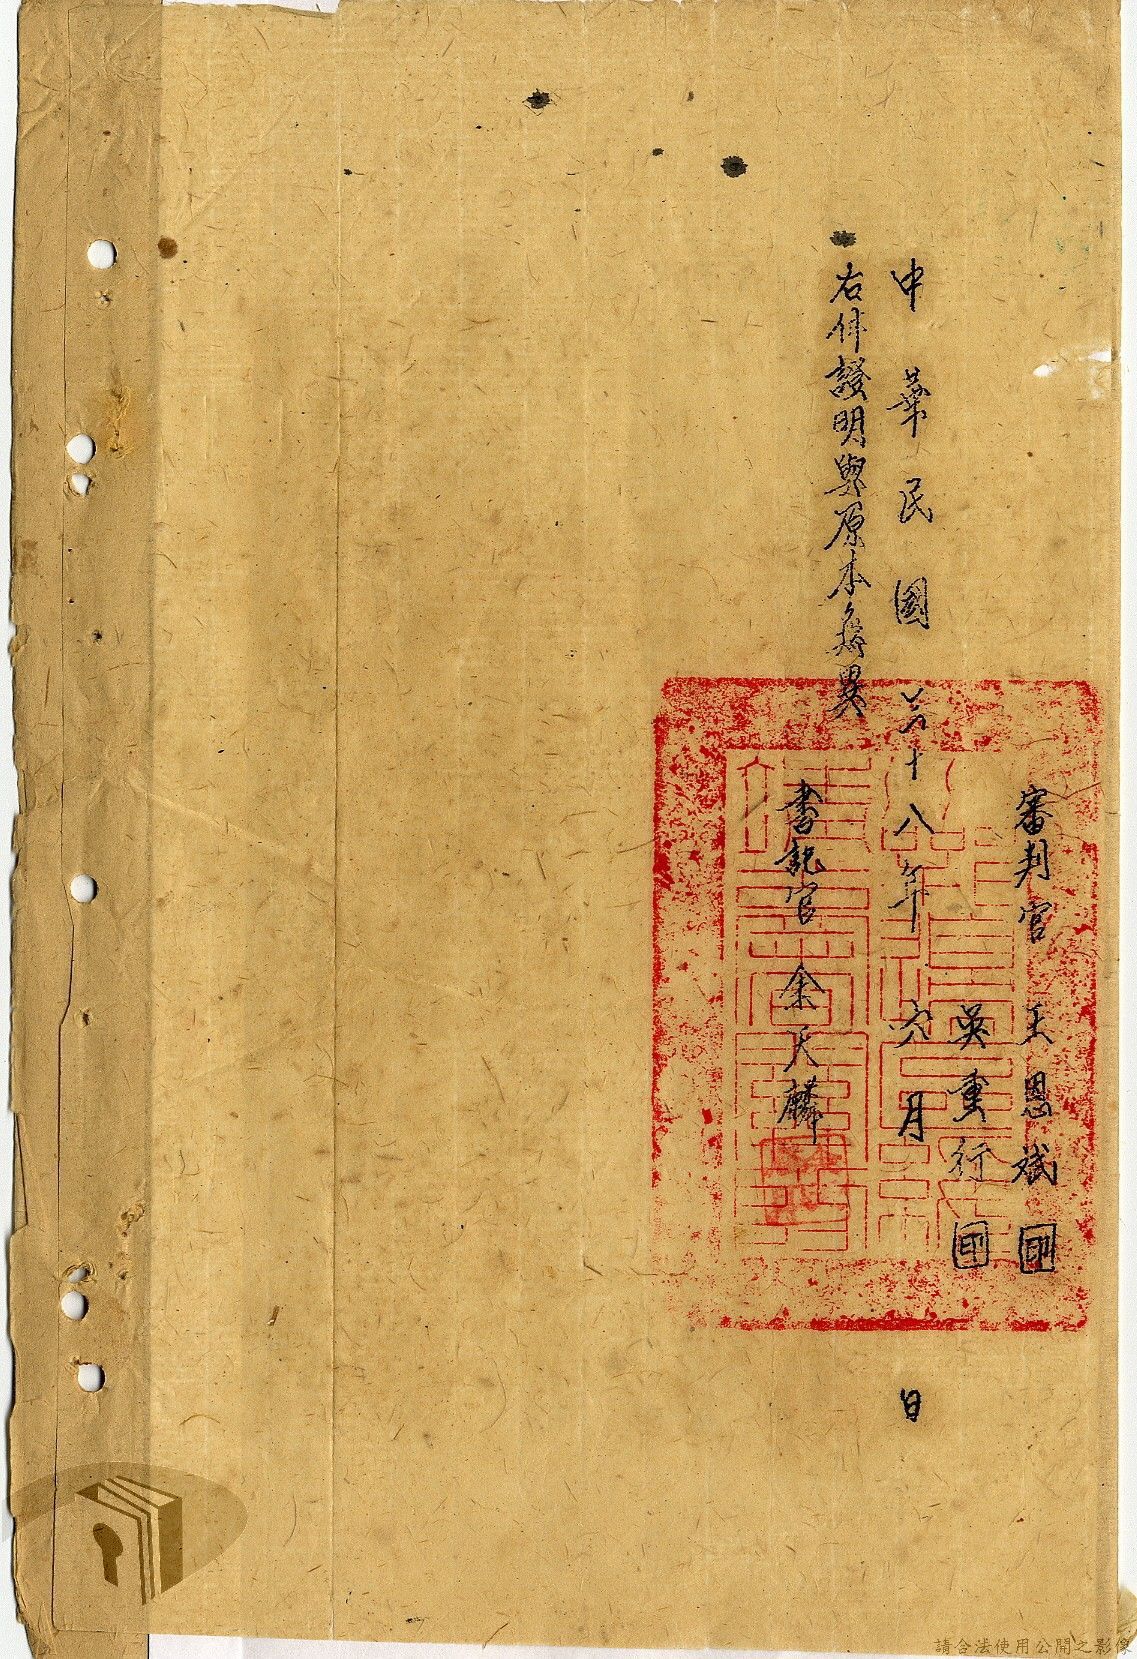 審判官 王恩斌 印
吳重行 印
中華民國 十八年 六月 日
右件證明與原本無異
書記官 余天麟
請合法使用公開之影像